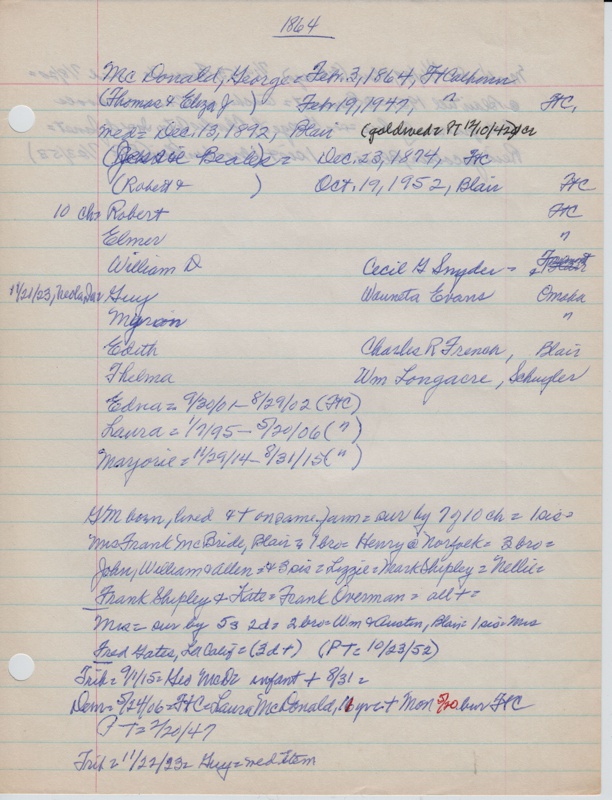 1864
Mc Donald, George = Feb. 3, 1864, Ft Calhoun
(Thomas & Eliza J ) Feb 19, 1947, " FtC,
med = Dec. 13, 1892, Blair (goldwed = PT 12/10/42) cr
(Jessie Beales) = Dec. 23, 1874, FtC
(Robert & ) Oct. 19, 1952, Blair FtC
10 chs Robert FtC
Elmer "
William D Cecil G Snyder =
11/21/23, Neola, Ia = Guy Wauneta Evans Omaha
Myron "
Edith Charles R French, Blair
Thelma Wm Longacre, Schuyler
Edna = 9/30/01 - 8/29/02 (FtC)
Laura = 1/7/95 - 5/20/06 ( " )
Marjorie = 11/29/14 - 8/31/15 ( " )
GM born, lived & + on same farm = sur by 7 of 10 ch = 1 sis =
Mrs Frank McBride, Blair & 1 bro = Henry @ Norfolk = 3 bro =
John, William & Allen = & 3 sis = Lizzie = Mark Shipley = Nellie =
Frank Shipley & Kate = Frank Overman = all + =
Mrs = sur by 5s 2d = 2 bro = Wm & Austin, Blair = 1 sis = Mrs
Fred Gates, La Calif = (3d+) (PT = 10/23/52)
Trib = 9/1/15 = Geo McDs infant + 8/31 =
Dem = 5/24/06 = FtC = Laura McDonald, 11 yrs + Mon 5/20 bur FtC
PT = 2/20/47
Trib = 11/22/23 = Guy = wed item